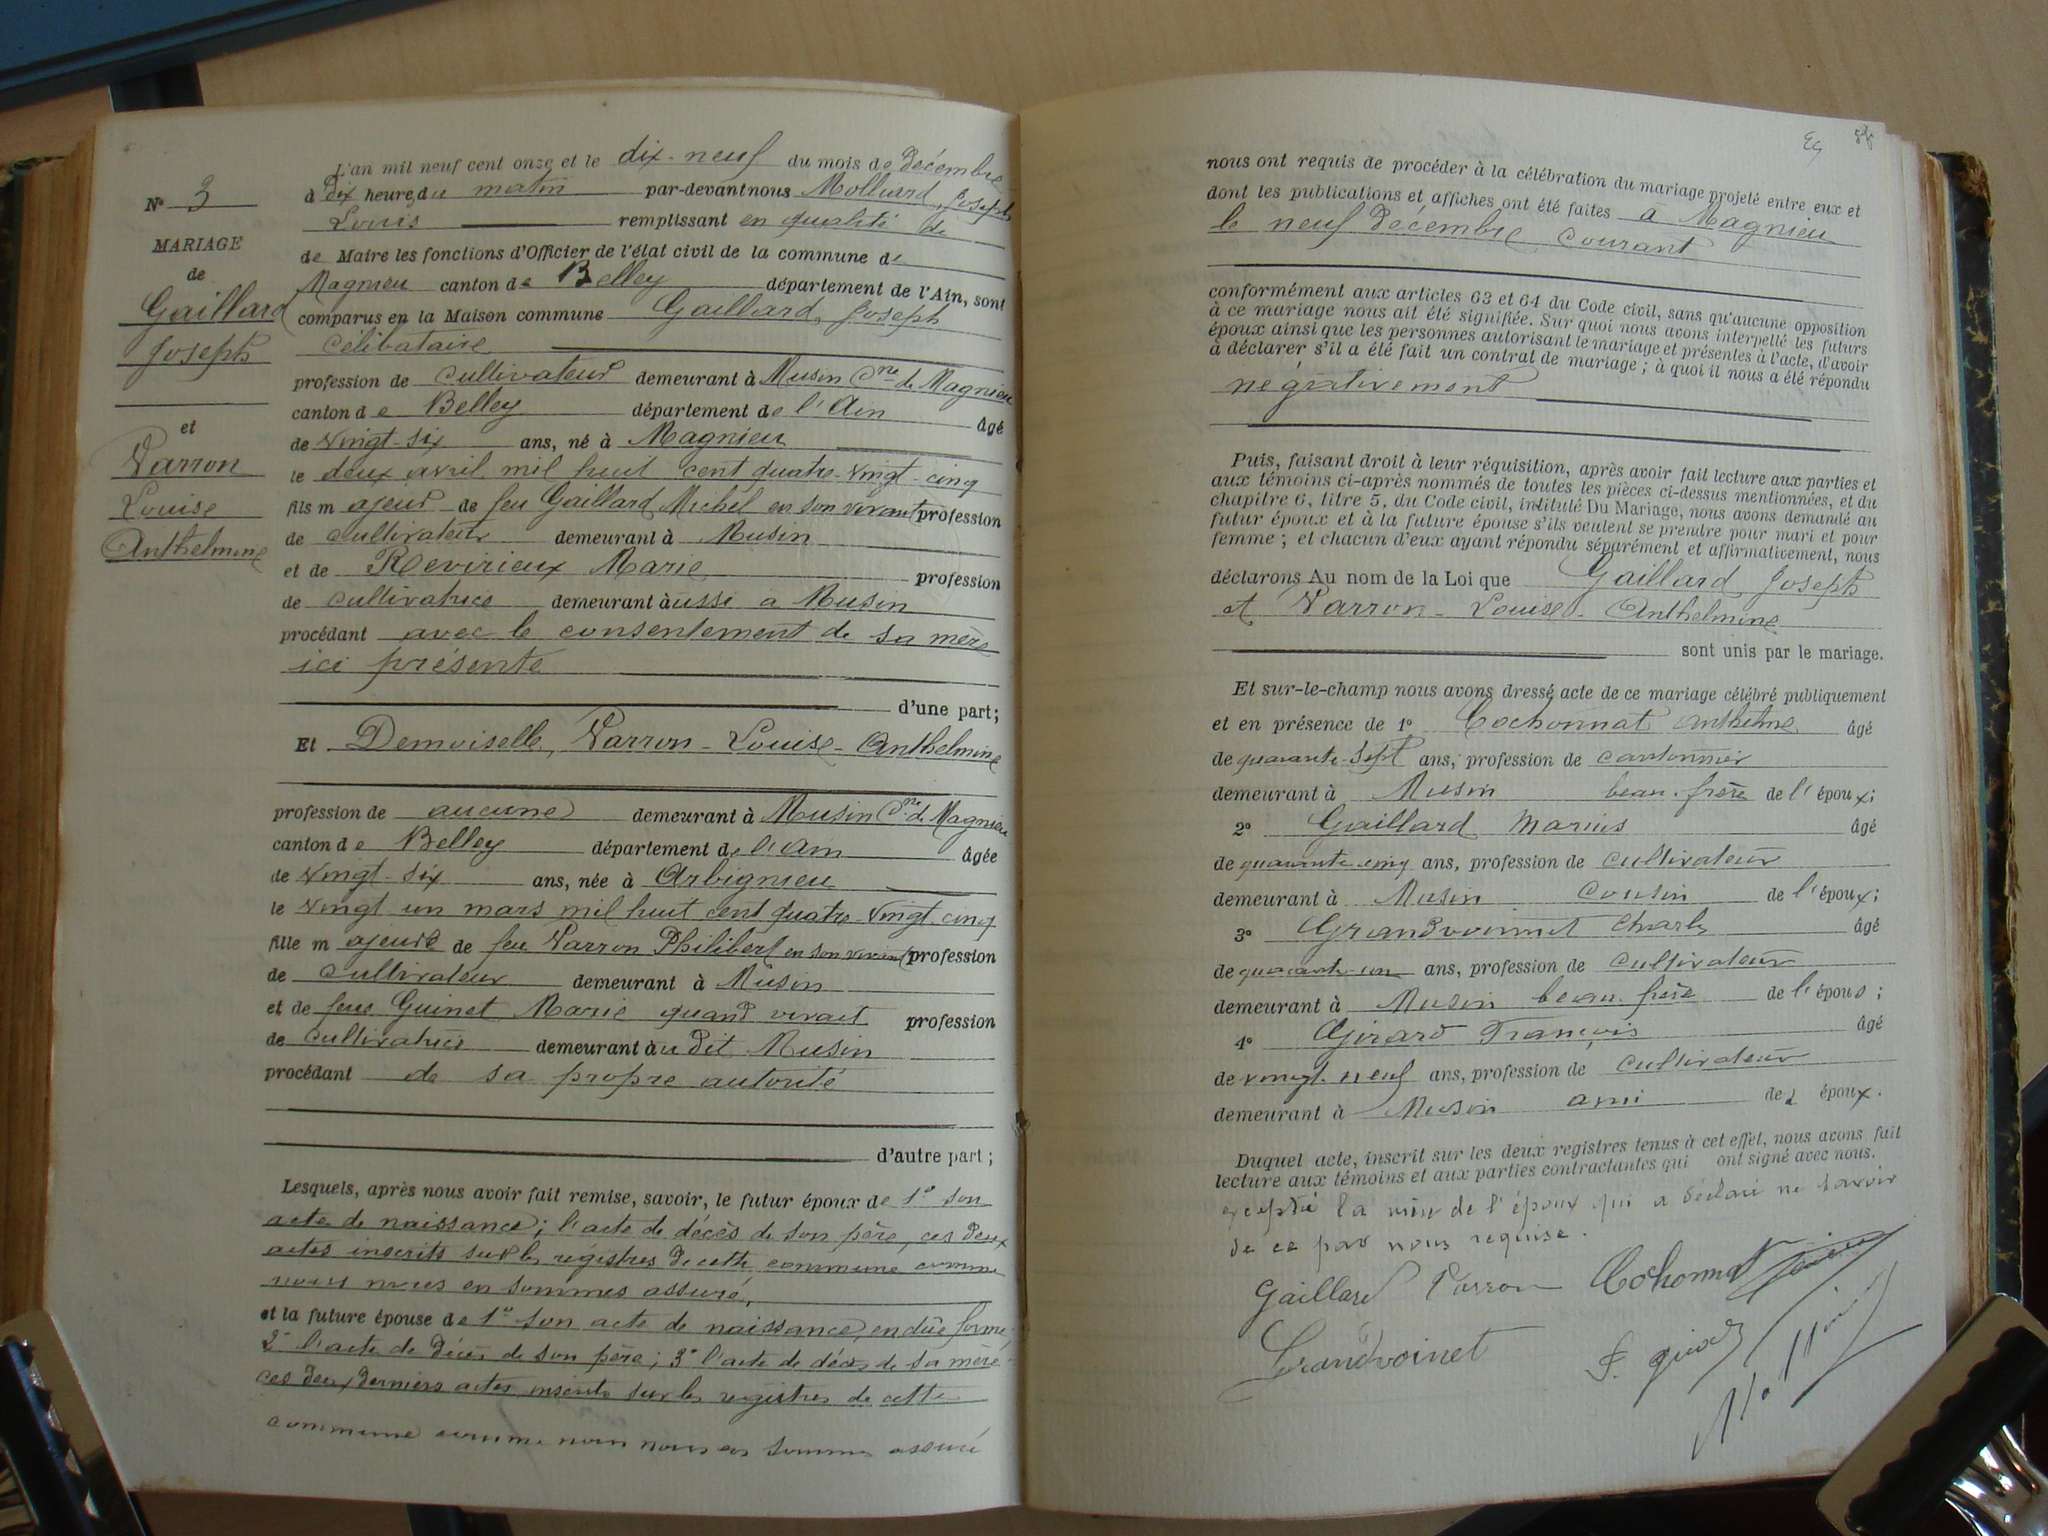 N° 3
MARIAGE
de
Gaillard
Joseph
et
Varron
Louise
Anthelmine
L'an mil neuf cent onze et le dix-neuf du mois de Décembre
à dix heures du matin par-devant nous Molliard, Joseph
Louis remplissant en qualité de
de Maire les fonctions d'Officier de l'état civil de la commune de
Magnieu canton de Belley département de l'Ain, sont
comparus en la Maison commune Gaillard, Joseph
célibataire
profession de cultivateur demeurant à Musin Cne de Magnieu
canton de Belley département de l'Ain âgé
de vingt-six ans, né à Magnieu
le deux avril mil huit cent quatre-vingt-cinq
fils majeur de feu Gaillard Michel en son vivant profession
de cultivateur demeurant à Musin
et de Revirieux Marie profession
de cultivatrice demeurant aussi à Musin
procédant avec le consentement de sa mère
ici présente
d'une part;
Et Demoiselle, Varron-Louise-Anthelmine
profession de aucune demeurant à Musin Cne d. Magnieu
canton de Belley département de l'Ain âgée
de vingt-six ans, née à Arbignieu
le vingt un mars mil huit cent quatre-vingt-cinq
fille majeure de feu Varron Philibert en son vivant profession
de cultivateur demeurant à Musin
et de feue Guinet Marie quand vivait profession
de cultivatrice demeurant au dit Musin
procédant de sa propre autorité
d'autre part;
Lesquels, après nous avoir fait remise, savoir, le futur époux de 1° son
acte de naissance; l'acte de décès de son père, ces deux
actes inscrits sur les régistres de cette commune comme
nous nous en sommes assuré,
et la future épouse de 1° son acte de naissance en dûe forme;
2° l'acte de décès de son père; 3° l'acte de décès de sa mère
ces deux derniers actes inscrits sur les registres de cette
commune comme nous nous en sommes assuré
nous ont requis de procéder à la célébration du mariage projeté entre eux et
dont les publications et affiches ont été faites à Magnieu
le neuf Décembre courant
conformément aux articles 63 et 64 du Code civil, sans qu'aucune opposition
à ce mariage nous ait été signifiée. Sur quoi nous avons interpellé les futurs
époux ainsi que les personnes autorisant le mariage et présentes à l'acte, d'avoir
à déclarer s'il a été fait un contrat de mariage; à quoi il nous a été répondu
négativement
Puis, faisant droit à leur réquisition, après avoir fait lecture aux parties et
aux témoins ci-après nommés de toutes les pièces ci-dessus mentionnées, et du
chapitre 6, titre 5, du Code civil, intitulé Du Mariage, nous avons demandé au
futur époux et à la future épouse s'ils veulent se prendre pour mari et pour
femme; et chacun d'eux ayant répondu séparément et affirmativement, nous
déclarons Au nom de la Loi que Gaillard, Joseph
et Varron-Louise-Anthelmine
sont unis par le mariage.
Et sur-le-champ nous avons dressé acte de ce mariage célébré publiquement
et en présence de 1° Cochonnat Anthelme âgé
de quarante-sept ans, profession de cantonnier
demeurant à Musin beau-frère de l'époux;
2° Gaillard Marius âgé
de quarante cinq ans, profession de cultivateur
demeurant à Musin cousin de l'époux;
3° Grandvoinnet Charles âgé
de quarante-un ans, profession de cultivateur
demeurant à Musin beau-frère de l'épous;
4° Girard François âgé
de vingt-neuf ans, profession de cultivateur
demeurant à Musin ami des époux.
Duquel acte, inscrit sur les deux registres tenus à cet effet, nous avons fait
lecture aux témoins et aux parties contractantes qui ont signé avec nous.
excepté la mère de l'époux qui a déclaré ne savoir
de ce par nous requise.
Gaillard Varron Cochonnat
Grandvoinet